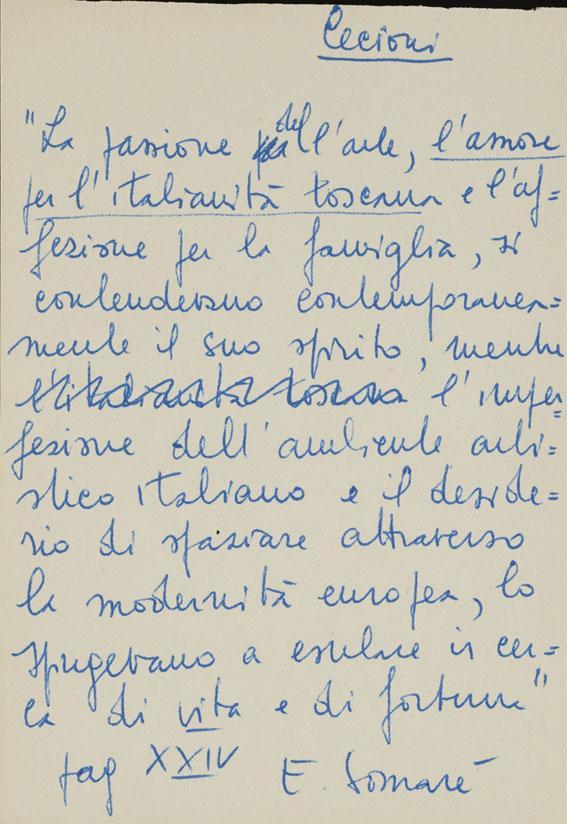 Cecioni
"La passione dell'arte, l'amore
per l'italianità toscana e l'af=
fezione per la famiglia, si
contendevano contemporanea=
mente il suo spirito, mentre
l'italianità toscana l'imper=
fezione dell'ambiente arti=
stico italiano e il deside=
rio di spaziare attraverso
la modernità europea, lo
spingevano a esulare in cer=
ca di vita e di fortuna"
pag XXIV E. Somaré